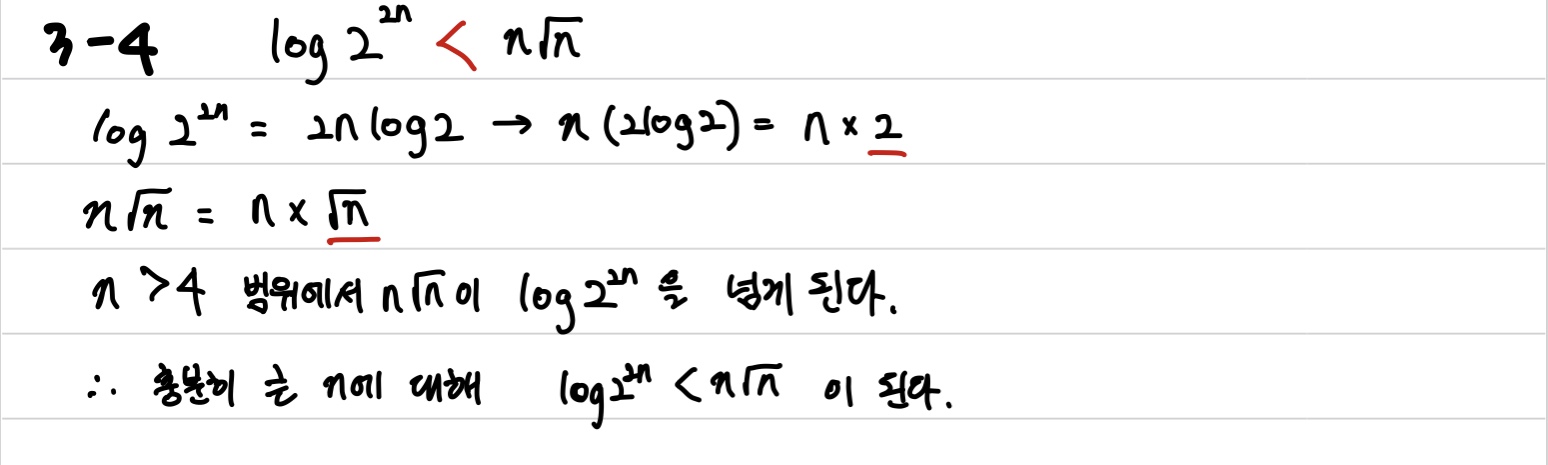 3-4 log 2²ⁿ < n√n
log 2²ⁿ = 2n log2 → n (2log2) = n × 2
n√n = n × √n
n > 4 범위에서 n√n이 log 2²ⁿ 을 넘게 된다.
∴ 충분히 큰 n에 대해 log2²ⁿ < n√n 이 된다.